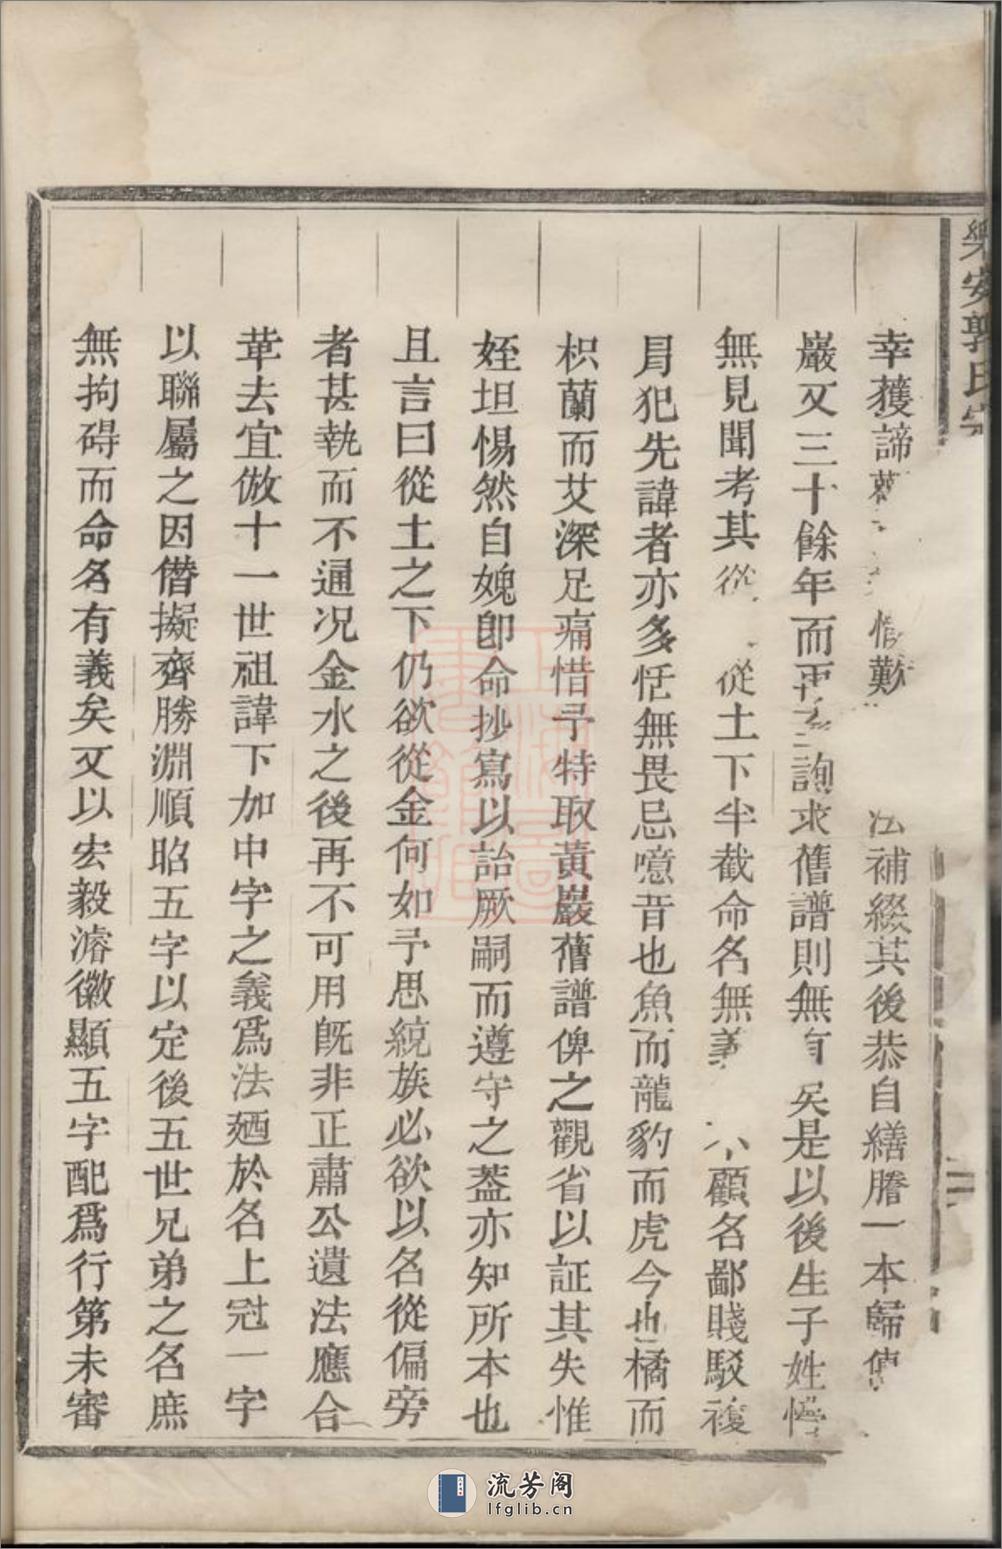 樂安郭氏宗
幸獲諦 歎 法補綴其後恭自繕謄一本歸傳
巖又三十餘年而再 詢求舊譜則無有矣是以後生子姓懵
無見聞考其從 從土下半截命名無義 不顧名鄙賤駁複
且犯先諱者亦多恬無畏忌噫昔也魚而龍豹而虎今也橘而
枳蘭而艾深足痛惜予特取黃巖舊譜俾之觀省以証其失惟
姪坦惕然自媿卽命抄寫以詒厥嗣而遵守之葢亦知所本也
且言曰從土之下仍欲從金何如予思統族必欲以名從偏旁
者甚執而不通况金水之後再不可用旣非正肅公遺法應合
革去宜倣十一世祖諱下加中字之義爲法廼於名上冠一字
以聯屬之因僣擬齊勝淵順昭五字以定後五世兄弟之名庶
無拘碍而命名有義矣又以宏毅濬徽顯五字配爲行第未審
上海圖書館藏
流芳阁
lfglib.cn